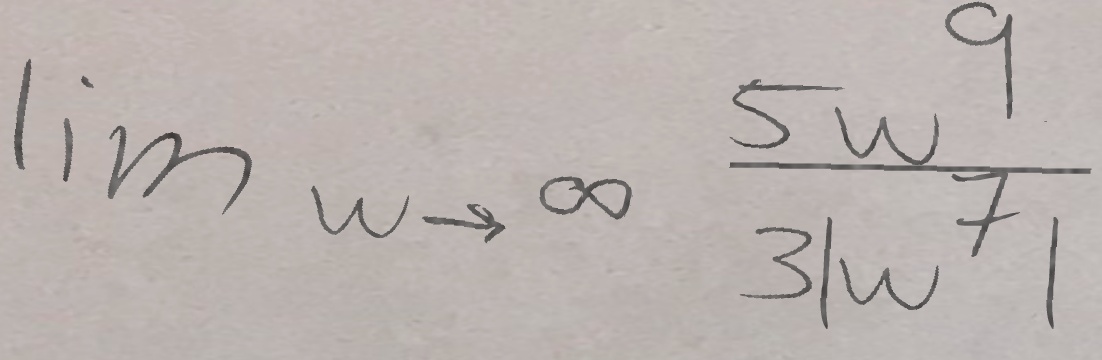 lim w→∞ 5w^9 / 3|w^7|